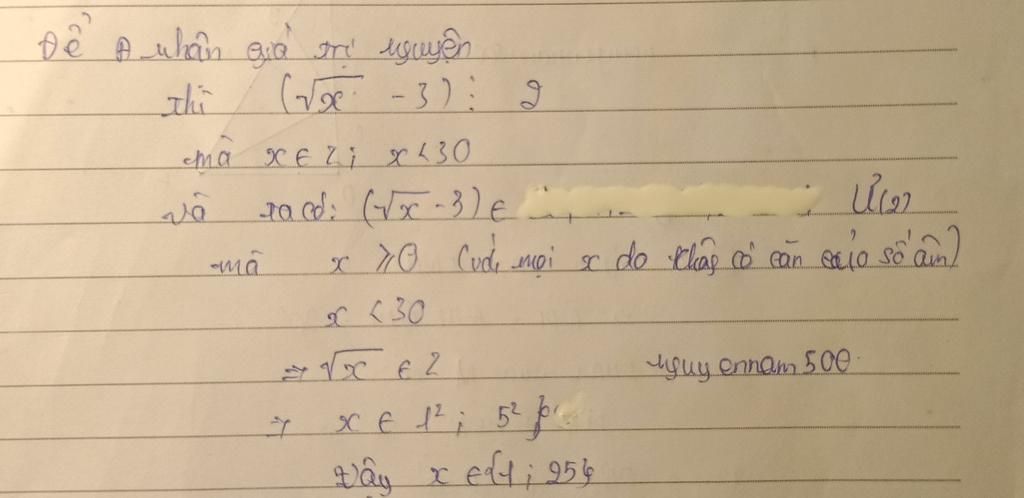 Để A nhận giá trị nguyên
thì (√x - 3) ⋮ 2
mà x ∈ Z; x < 30
và ta có: (√x - 3) ∈ Ư(2)
mà x ⩾ 0 (với mọi x do không có căn của số âm)
x < 30
⇒ √x ∈ Z nguyennam500
⇒ x ∈ 1²; 5² }
Vậy x ∈ {1; 25}